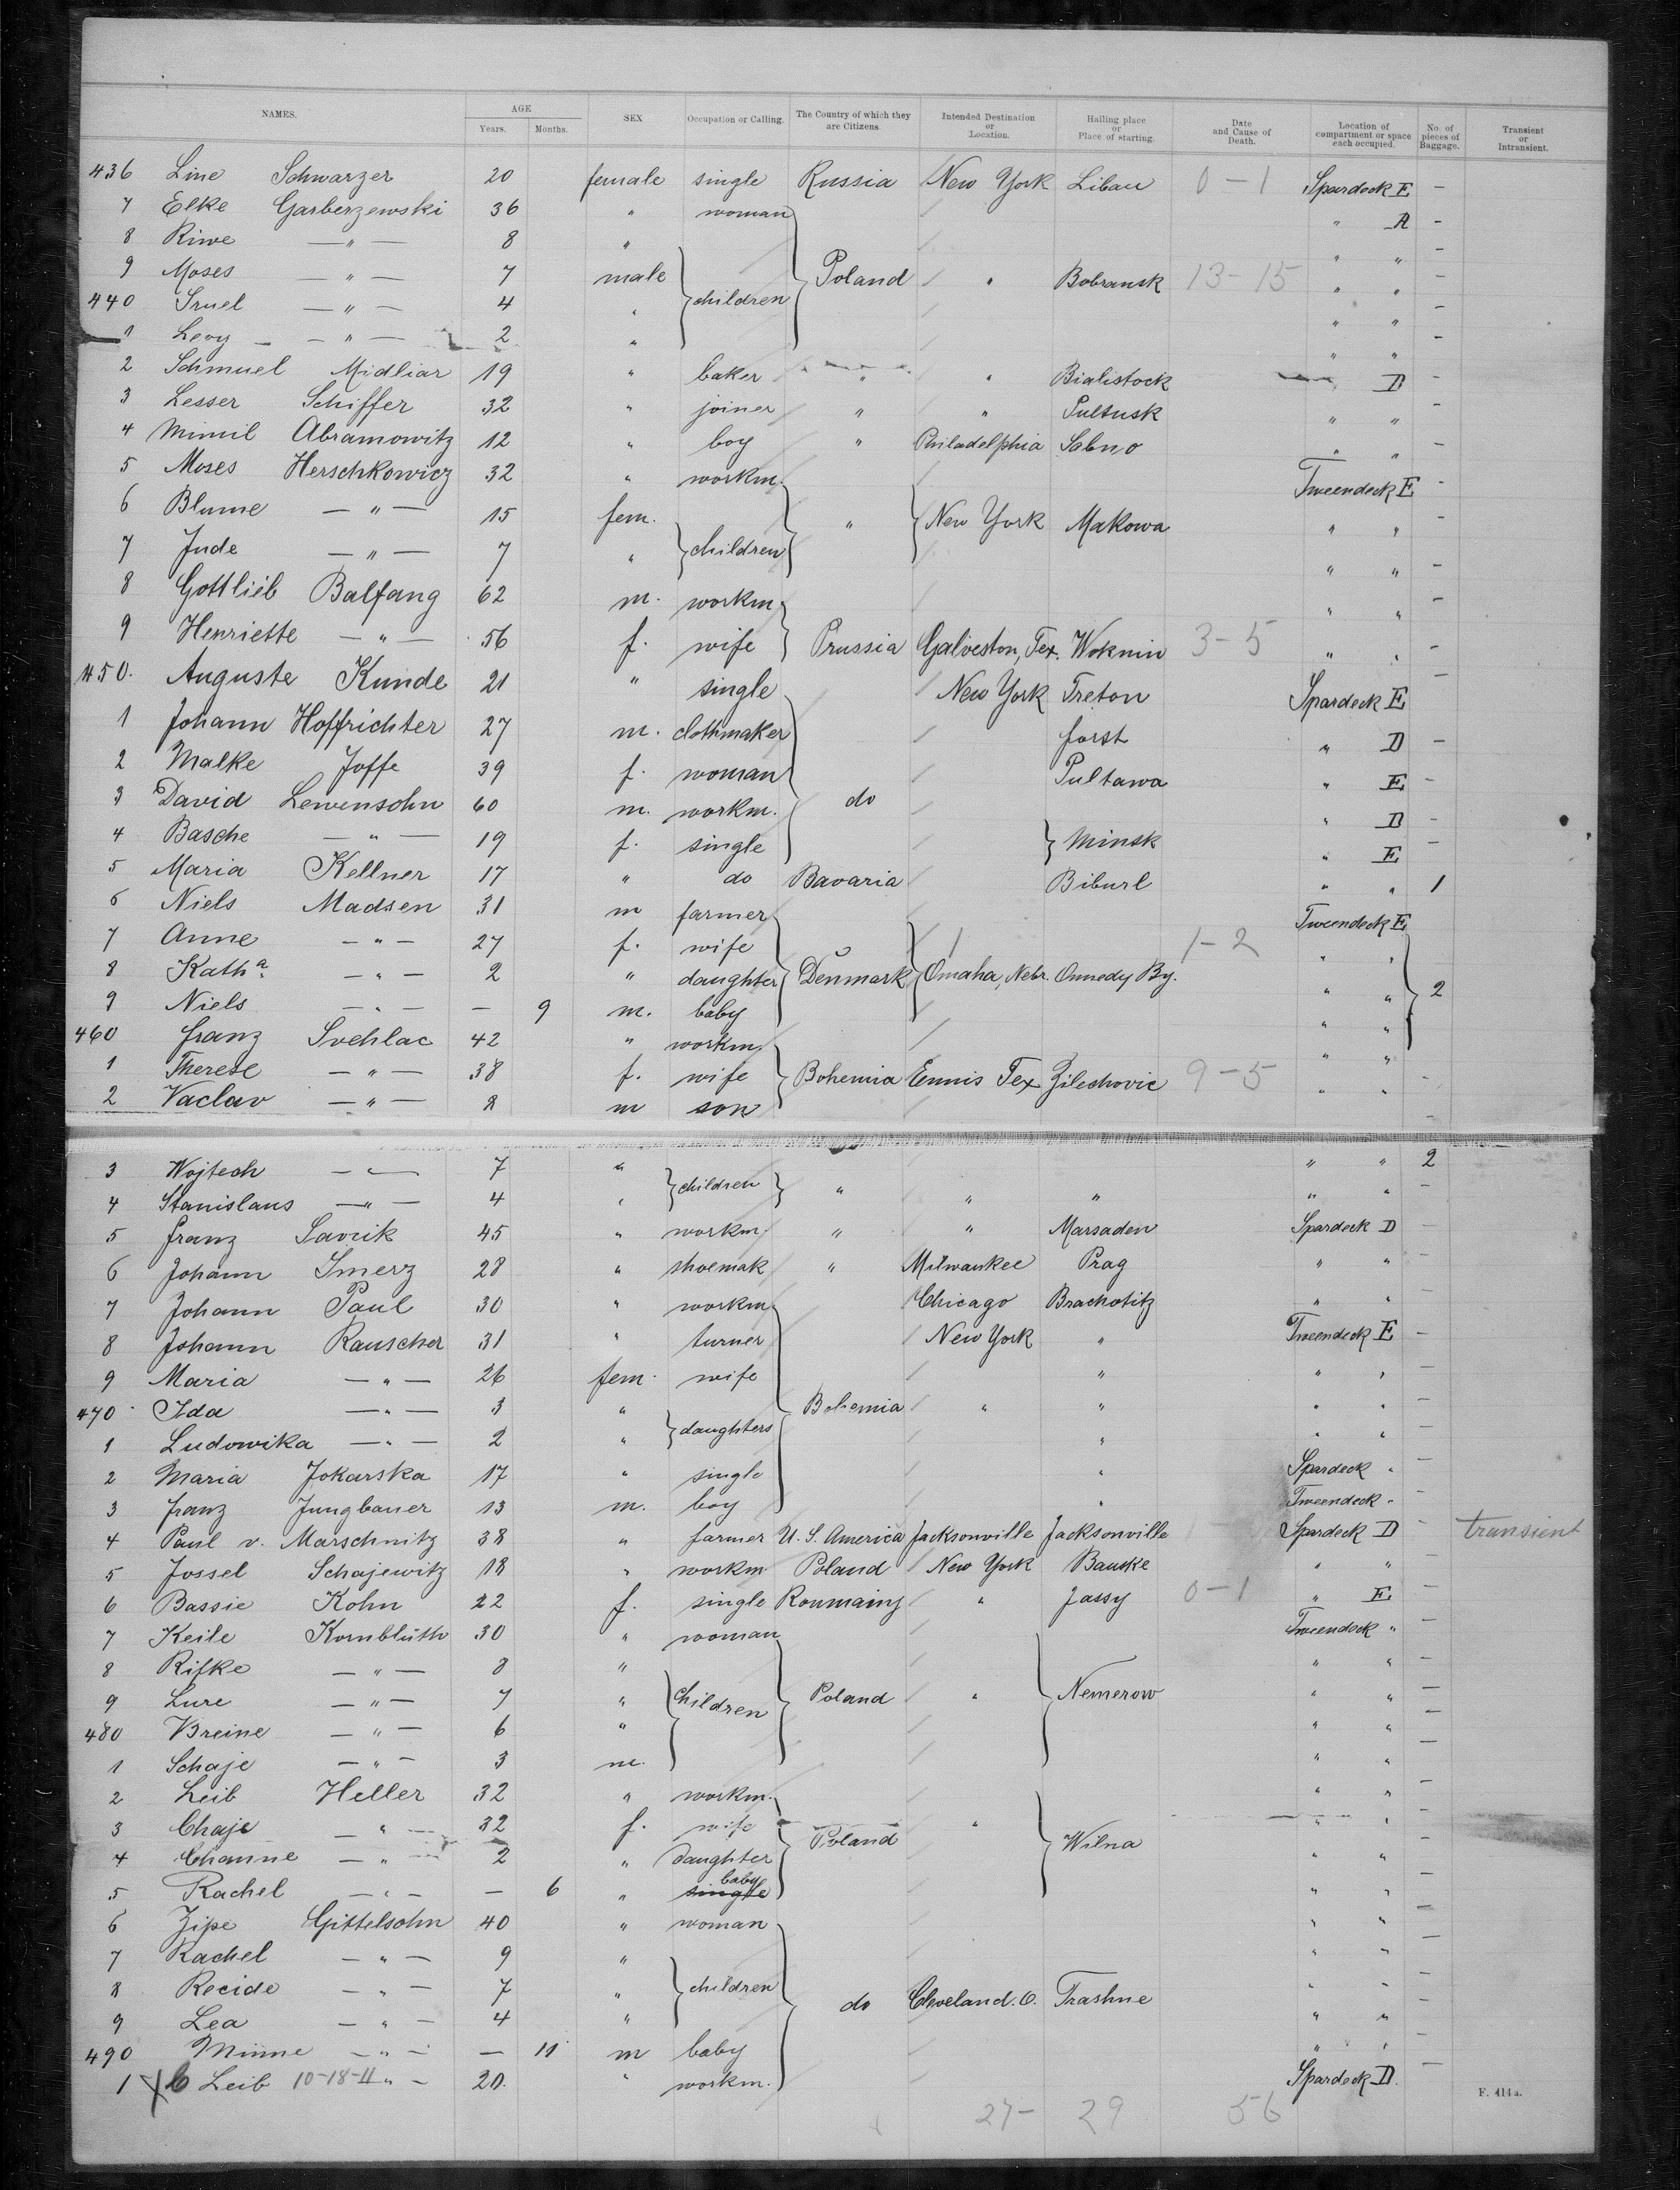 NAMES. AGE Years. Months. SEX Occupation or Calling. The Country of which they are Citizens. Intended Destination or Location. Hailing place or Place of starting. Date and Cause of Death. Location of compartment or space each occupied. No. of pieces of Baggage. Transient or Intransient.
436 Line Schwarzer 20 female single Russia New York Libau 0-1 Spardeck E -
7 Elke Garberzewski 36 " woman " A -
8 Riwe — " — 8 " " " -
9 Moses — " — 7 male children Poland " Bobransk 13-15 " " -
440 Sruel — " — 4 " " " -
1 Levy — " — 2 " " " -
2 Schmuel Midliar 19 " baker " " Bialistock D -
3 Lesser Schiffer 32 " joiner " " Pultusk " " -
4 Mimil Abramowitz 12 " boy " Philadelphia Sabno " " -
5 Moses Herschkowicz 32 " workm. Tweendeck E -
6 Blume — " — 15 fem. " New York Makowa " " -
7 Jude — " — 7 " children " " -
8 Gottlieb Balfang 62 m. workm. " " -
9 Henriette — " — 56 f. wife Prussia Galveston, Tex. Woknin 3-5 " " -
450. Auguste Kunde 21 " single New York Treton Spardeck E -
1 Johann Hoffrichter 27 m. clothmaker forst " D -
2 Malke Joffe 39 f. woman Pultawa " E -
3 David Lewensohn 60 m. workm. do " D -
4 Basche — " — 19 f. single Minsk " E -
5 Maria Kellner 17 " do Bavaria Biburl " " 1
6 Niels Madsen 31 m farmer Tweendeck E
7 Anne — " — 27 f. wife 1-2 " "
8 Katha. — " — 2 " daughter Denmark Omaha, Nebr. Onnedy By. " " 2
9 Niels — " — — 9 m. baby " "
460 franz Svehlac 42 " workm. " "
1 Therese — " — 38 f. wife Bohemia Ennis Tex Zilechovic 9-5 " " -
2 Vaclav — " — 8 m son -
3 Wojtech — " — 7 " " " 2
4 Stanislaus — " — 4 " children " " " " " -
5 franz Savrik 45 " workm. " " Marsaden Spardeck D -
6 Johann Smerz 28 " shoemak " Milwaukee Prag " " -
7 Johann Paul 30 " workm Chicago Brachotitz " " -
8 Johann Rauscher 31 " turner New York " Tweendeck E -
9 Maria — " — 26 fem. wife " " " -
470 Ida — " — 3 " Bohemia " " " " -
1 Ludowika — " — 2 " daughters " " " -
2 Maria Jokarska 17 " single " Spardeck " -
3 franz Jungbauer 13 m. boy " Tweendeck " -
4 Paul v. Marschnitz 38 " farmer U. S. America Jacksonville Jacksonville Spardeck D - transient
5 Jossel Schajewitz 18 " workm Poland New York Bauske " " -
6 Bassie Kohn 22 f. single Roumainy " Jassy 0-1 " E -
7 Keile Kornblüth 30 " woman Tweendeck " -
8 Rifke — " — 8 " " " -
9 Lure — " — 7 " children Poland " Nemerow " " -
480 Breine — " — 6 " " " -
1 Schaje — " — 3 m. " " -
2 Leib Heller 32 " workm. " " -
3 Chaje — " — 32 f. wife Poland " Wilna " " -
4 Channe — " — 2 " daughter " " -
5 Rachel — " — — 6 " single baby " " -
6 Zipe Gittelsohn 40 " woman " " -
7 Rachel — " — 9 " " " -
8 Recide — " — 7 " children do Cleveland. O. Trashne " " -
9 Lea — " — 4 " " " -
490 Minne — " — — 11 m baby " " -
1 Leib 10-18-11 " — 20. " workm. Spardeck D. -
27- 29 56
F. 414 a.